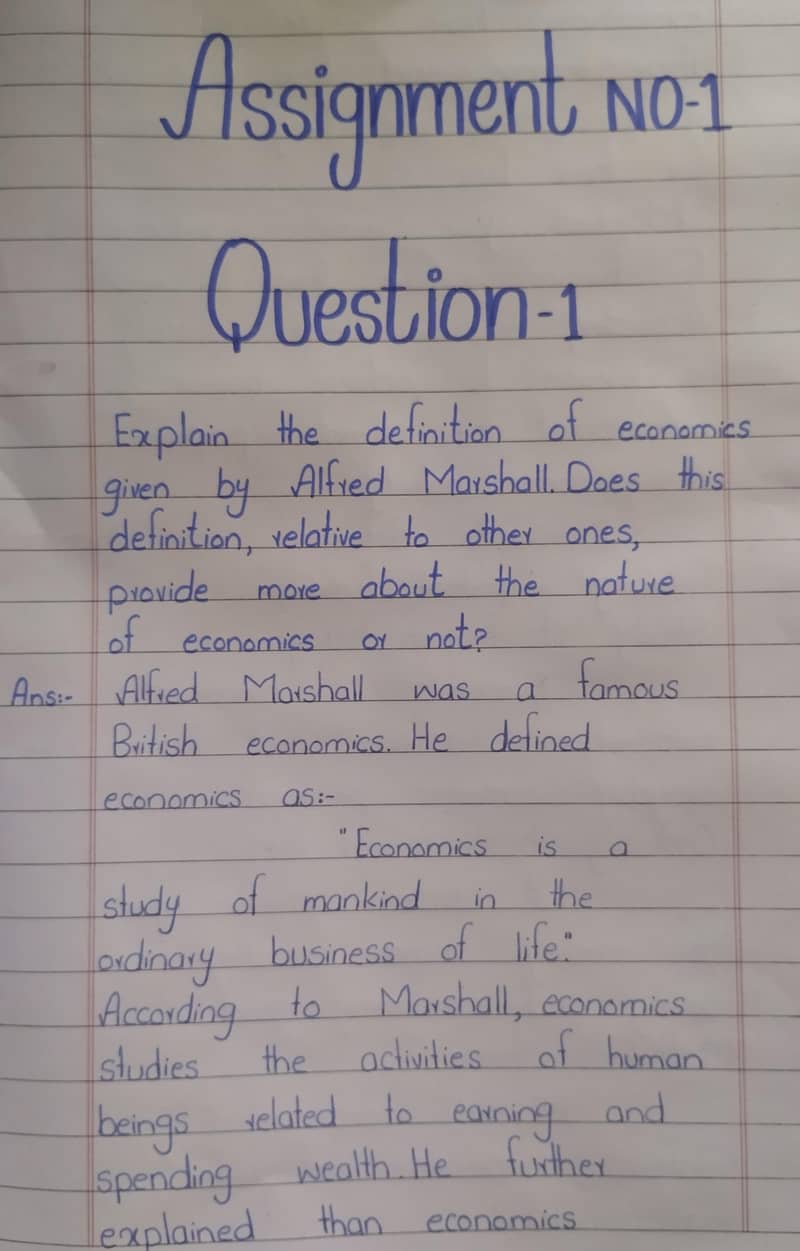 Assignment NO-1
Question-1
Explain the definition of economics
given by Alfred Marshall. Does this
definition, relative to other ones,
provide more about the nature
of economics or not?
Ans:- Alfred Marshall was a famous
British economics. He defined
economics as:-
"Economics is a
study of mankind in the
ordinary business of life."
According to Marshall, economics
studies the activities of human
beings related to earning and
spending wealth. He further
explained than economics